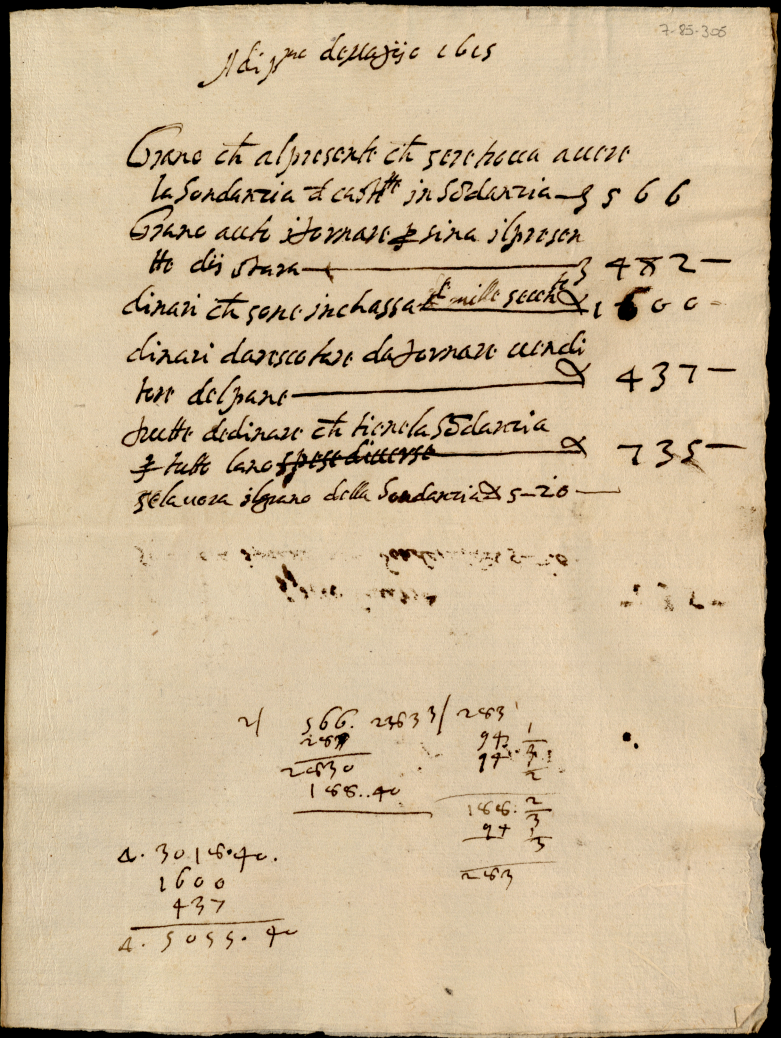 7-85-306
Adi p.mo de maggio 1615
Grano ch al presente ch se retrova avere
la bondanzia d cast.tto in bōdanzia — 3 566
Grano auto i fornare p sina il presen
tte dij stara — 3 482 —
dinari ch sono in chassa mille secen.to 1600 -
dinari da rescotere da fornare vendi
tore del pane — 437 —
frutto de dinare ch tiene la bōdanzia
p tutto lano spese diverse — 735 —
se lavora il grano della bondanzia 5-20 —
2/ 566. 2833/ 283
283 94 1/3
2830 94 1/2
188..40 188. 2/3
94 1/3
283
Δ. 3018.40.
1600
437
Δ. 5055. 40